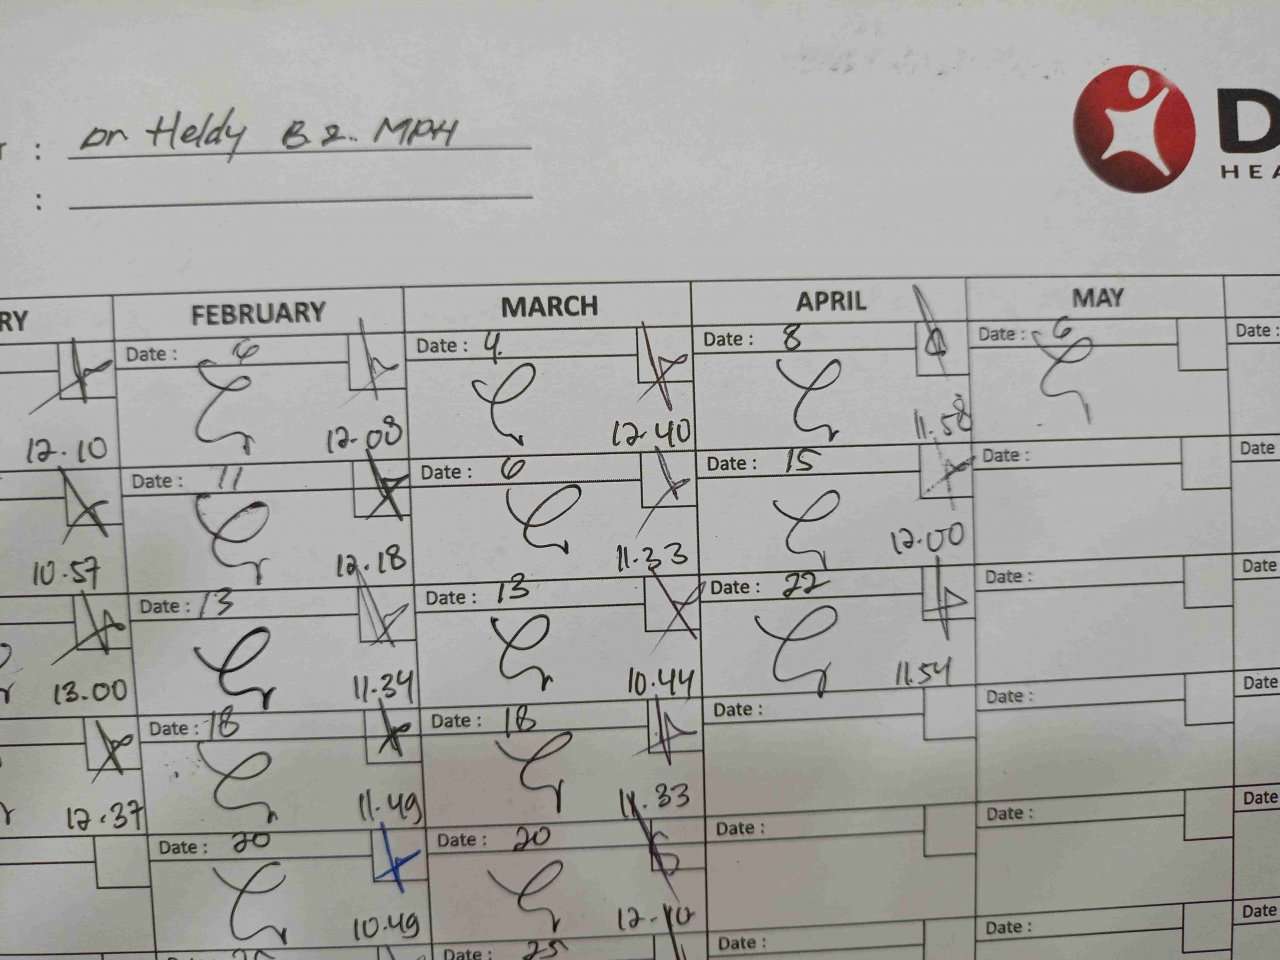 : Dr Heldy B2. MPH
:
D
HEA
RY FEBRUARY MARCH APRIL MAY
Date : 6 Date : 4. Date : 8 Date : 6 Date :
12.10 12.08 12.40 11.58
Date : 11 Date : 6 Date : 15 Date : Date
10.57 12.18 11.33 12.00
Date : 13 Date : 13 Date : 22 Date : Date
13.00 11.34 10.44 11.54
Date : 18 Date : 18 Date : Date : Date
12.37 11.49 11.33
Date : 20 Date : 20 Date : Date : Date
10.49 12.10
Date : 25 Date : Date : Date